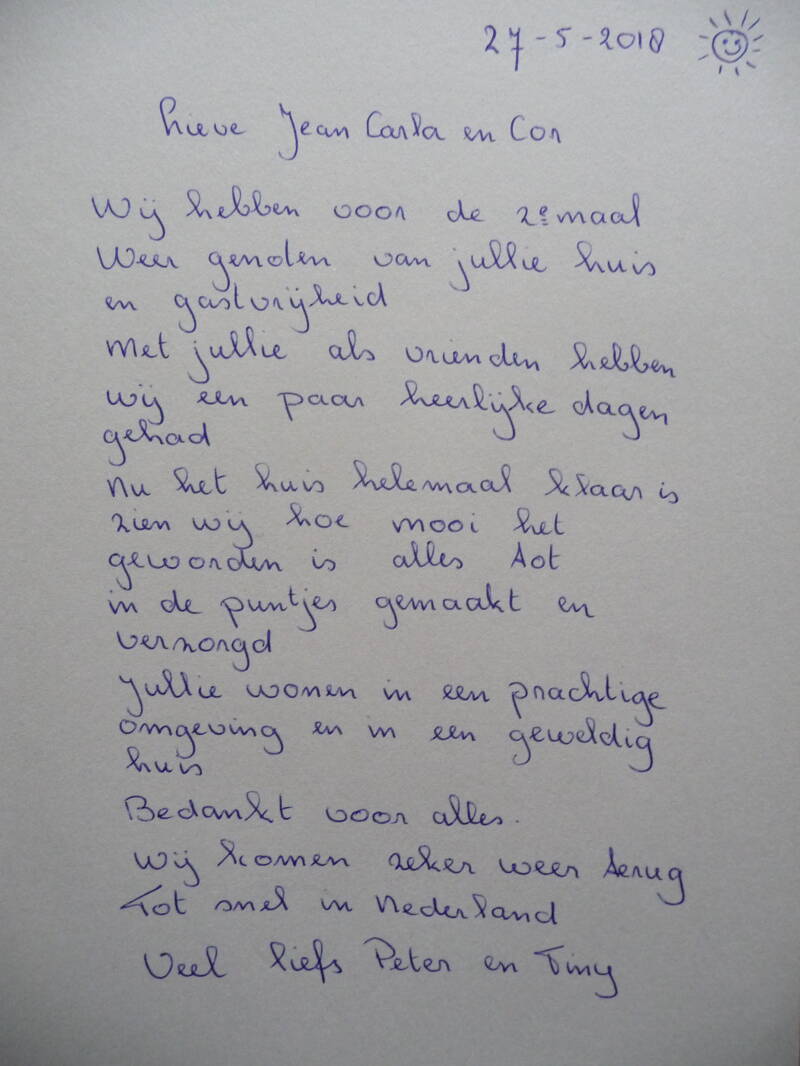 27-5-2018
Lieve Jean Carla en Cor
Wij hebben voor de 2e maal
Weer genoten van jullie huis
en gastvrijheid
Met jullie als vrienden hebben
wij een paar heerlijke dagen
gehad
Nu het huis helemaal klaar is
zien wij hoe mooi het
geworden is alles tot
in de puntjes gemaakt en
verzorgd
Jullie wonen in een prachtige
omgeving en in een geweldig
huis
Bedankt voor alles.
Wij komen zeker weer terug
Tot snel in Nederland
Veel liefs Peter en Tiny